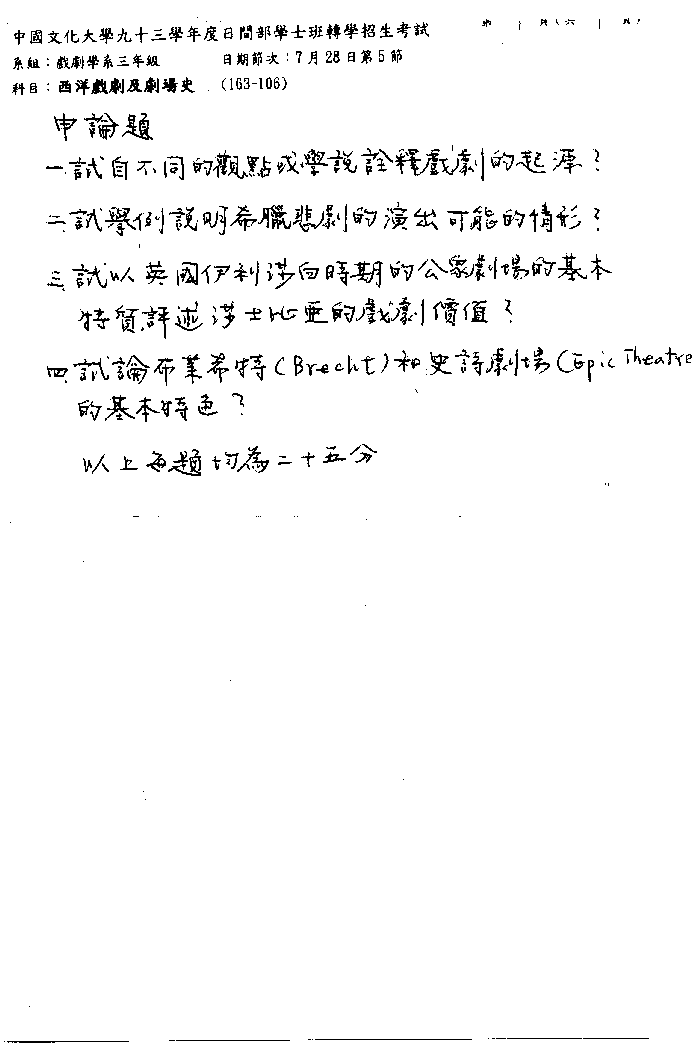 中國文化大學九十三學年度日間部學士班轉學招生考試
第 1 頁(共 1 頁)
系組:戲劇學系三年級 日期節次:7月28日第5節
科目:西洋戲劇及劇場史 (163-106)
申論題
一試自不同的觀點或學說詮釋戲劇的起源?
二試舉例說明希臘悲劇的演出可能的情形?
三試以英國伊利莎白時期的公眾劇場的基本
特質評述莎士比亞的戲劇價值?
四試論布萊希特(Brecht)和史詩劇場(Epic Theatre
的基本特色?
以上每題均為二十五分